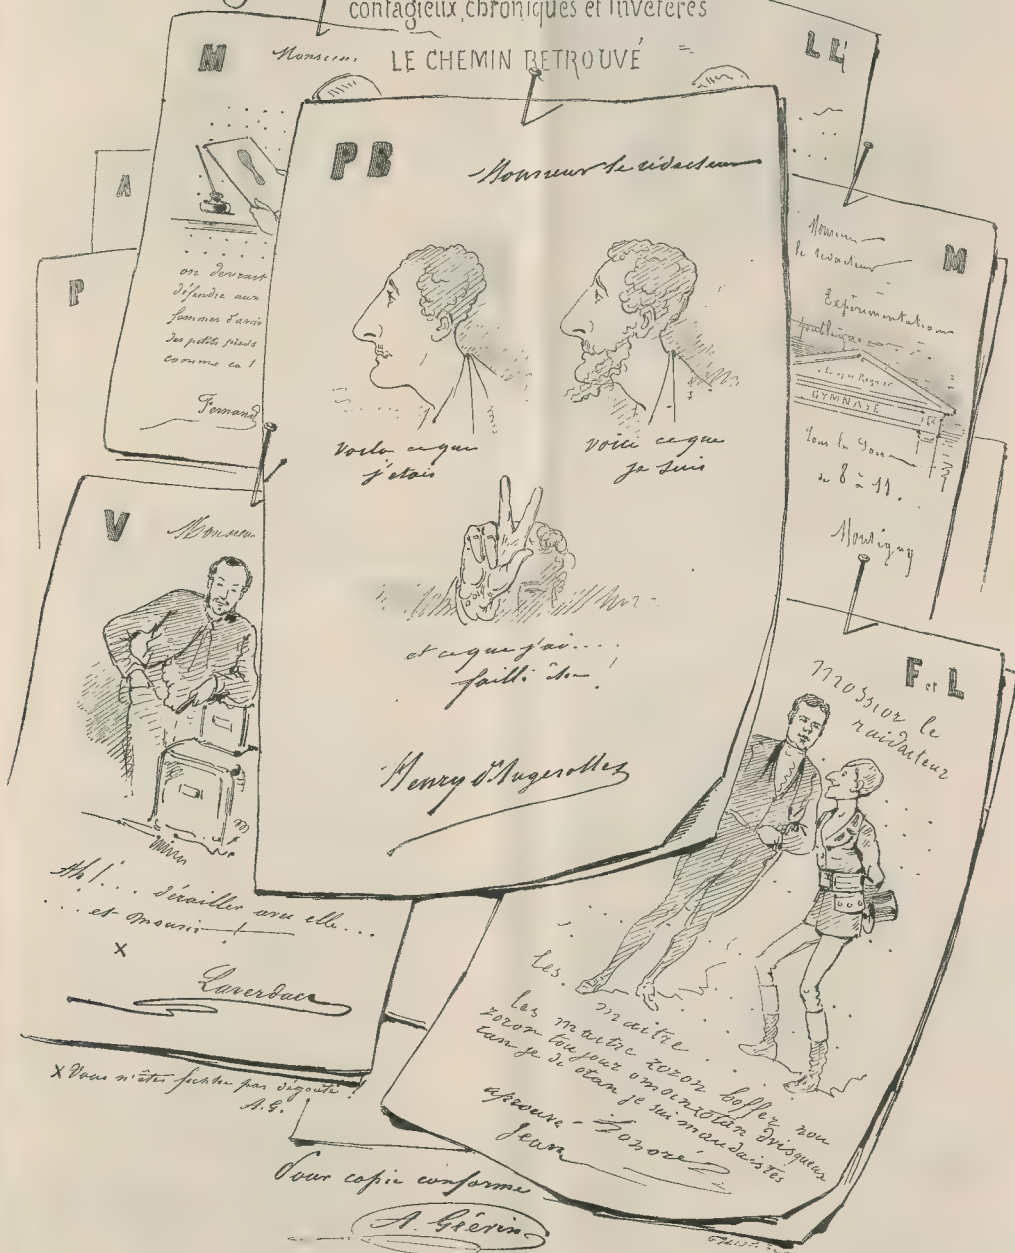 contagieux, chroniques et invétérés
LE CHEMIN RETROUVÉ
M
Monsieur
on devrait
défendre aux
femmes d'avoir
des petits pieds
comme ça !
Fernand
A
P
LL
P B
Monsieur le rédacteur
voilà ce que
j'étais
voici ce que
je suis
et ce que j'ai....
failli être !
Henry d'Augerolles
M
Monsieur
le rédacteur
Expérimentation
publique
GYMNASE
Tous les soirs
de 8 à 11.
Montigny
V
Monsieur
Ah!... dérailler avec elle...
... et mourir !
X
Laverdac
X Vous n'êtes fichtre pas dégoûté !
A.G.
F et L
Mossior le
raidacteur
les. maitre
les maitre zoron boffer nou
zoron toujour omoinzotan drisqueur
tan je di otan je sui mandaistés
aprouvé - Honoré
Jean
Pour copie conforme
A. Grévin